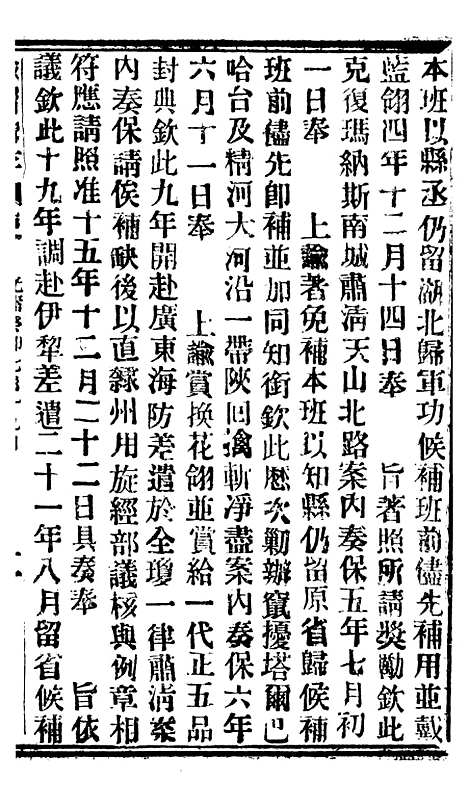 本班以縣丞仍留湖北歸軍功候補班前儘先補用並戴
藍翎四年十二月十四日奉　　旨著照所請獎勵欽此
克復瑪納斯南城肅清天山北路案內奏保五年七月初
一日奉　　上諭著免補本班以知縣仍留原省歸候補
班前儘先卽補並加同知銜欽此歷次勦辦竄擾塔爾巴
哈台及精河大河沿一帶陝回擒斬淨盡案內奏保六年
六月十一日奉　　上諭賞換花翎並賞給一代正五品
封典欽此九年開赴廣東海防差遣於全瓊一律肅清案
內奏保請俟補缺後以直隸州用旋經部議核與例章相
符應請照准十五年十二月二十二日具奏奉　　旨依
議欽此十九年調赴伊犂差遣二十一年八月留省候補